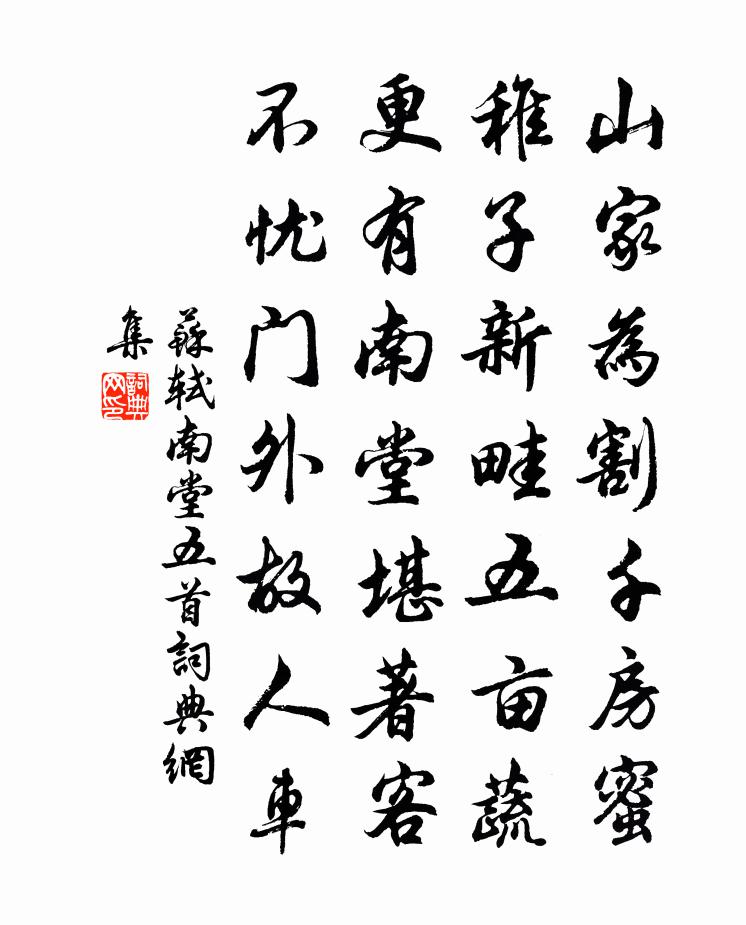 山家為割千房蜜
稚子新畦五亩蔬
更有南堂堪著客
不忧门外故人車
蘇軾南堂五首詞典網
集
詞典
网印